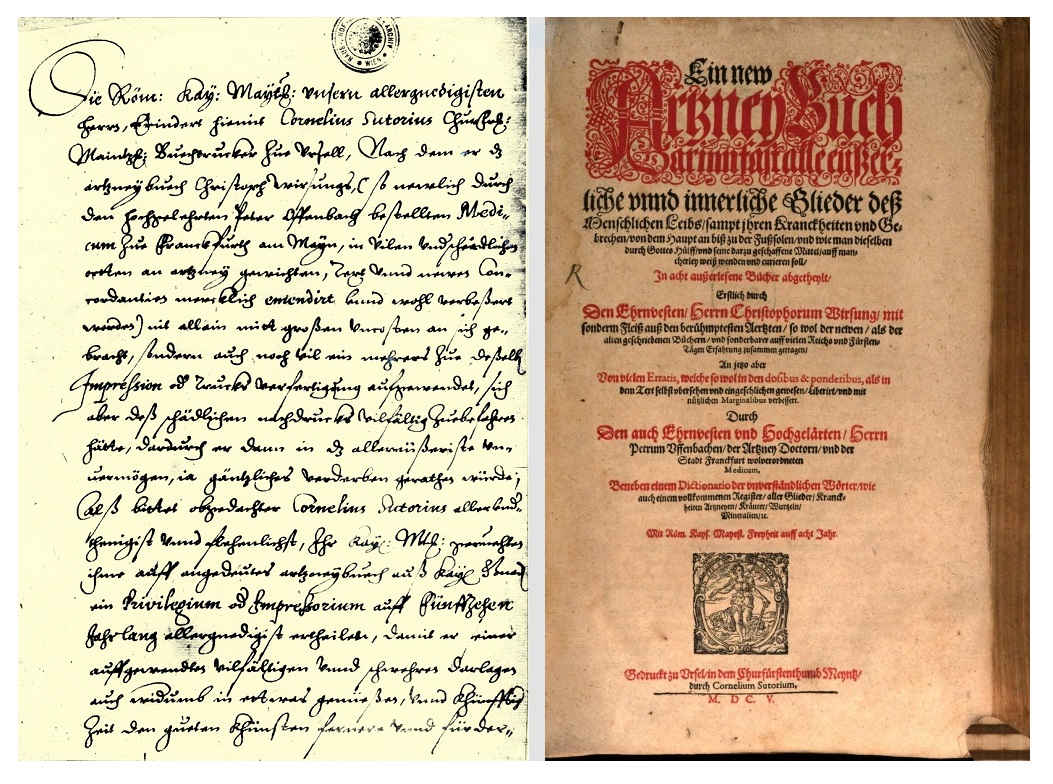 HAUS- HOF- ARCHIV
WIEN
Die Röm: Kay: Maytt: unsern allergnedigisten
Herrn, Erindert hiemit Cornelius Sutorius Churfrl:
Maintz: Buechtrucker zue Ursell, Nach dem er dz
artzneybuech Christoph Wirsungs, (so newlich durch
den hochgelehrten Peter Offenbach bestellten Medi-
cum zue Franckfurth am Mayn, in vilen undschiedlichen
orten an artzney gewichten, Text unnd newen Con-
cordantien mercklich emendirt unnd wohl verbessert
worden) nit allein mitt großen uncosten an sich ge-
bracht, sondern auch noch vil ein mehrers zue deßelb
Impression od Trucks verfertigung aufzewendet, sich
aber deß schädlichen nachdrucks vilfältig zuebefahren
hätte, dardurch er dann in dz allereüßeriste un-
uermögen, ia gäntzliches verderben gerathen würde,
Alß bittet obgedachter Cornelius Sutorius allerund-
thenigist unnd flehenlichst, Ihr Kay: Mtt: geruehten
ihme auff angedeutes artzneybuech auß Kay:
ein Privilegium od Impressorium auff Fünffzehen
Jahr lang allergnedigist ertheilen, damit er seiner
auffgewendten vilfältigen unnd schwehren darlagen
auch widumb in etwas genießen, unnd Khünfftig
Zeit den gueten Khünsten ferners unnd fürder-
Ein new
Artzney Buch
Darinn fast alle eusser-
liche vnnd innerliche Glieder deß
Menschlichen Leibs/ sampt jhren Kranckheiten vnd Ge-
brechen/ von dem Haupt an biß zu der Fußsolen/ vnd wie man dieselben
durch Gottes Hülff/ vnd seine darzu geschaffene Mittel/ auff man-
cherley weiß wenden vnd curieren soll/
In acht außerlesene Bücher abgetheylt/
R
Erstlich durch
Den Ehrnvesten/ Herrn Christophorum Wirsung/ mit
sonderm Fleiß auß den berühmptesten Aertzten/ so wol der newen/ als der
alten geschriebenen Büchern/ vnd sonderbarer auff vielen Reichs vnd Fürsten-
Tägen Erfahrung zusammen getragen/
An jetzo aber
Von vielen Erratis, welche so wol in den dosibus & ponderibus, als in
dem Text selbst vbersehen vnd eingeschlichen gewesen/ liberirt/ vnd mit
nützlichen Marginalibus verbessert.
Durch
Den auch Ehrnvesten vnd Hochgelärten/ Herrn
Petrum Vffenbachen/ der Artzney Doctorn/ vnd der
Stadt Franckfurt wolverordneten
Medicum.
Beneben einem Dictionario der vnverständlichen Wörter/ wie
auch einem vollkommenen Register/ aller Glieder/ Kranck-
heiten Artzneyen/ Kräuter/ Wurtzeln/
Mineralien/ &c.
Mit Röm. Keys. Mayest. Freyheit auff acht Jahr.
Gedruckt zu Vrsel/ in dem Churfürstenthumb Meyntz/
durch Cornelium Sutorium.
M. D C. V.